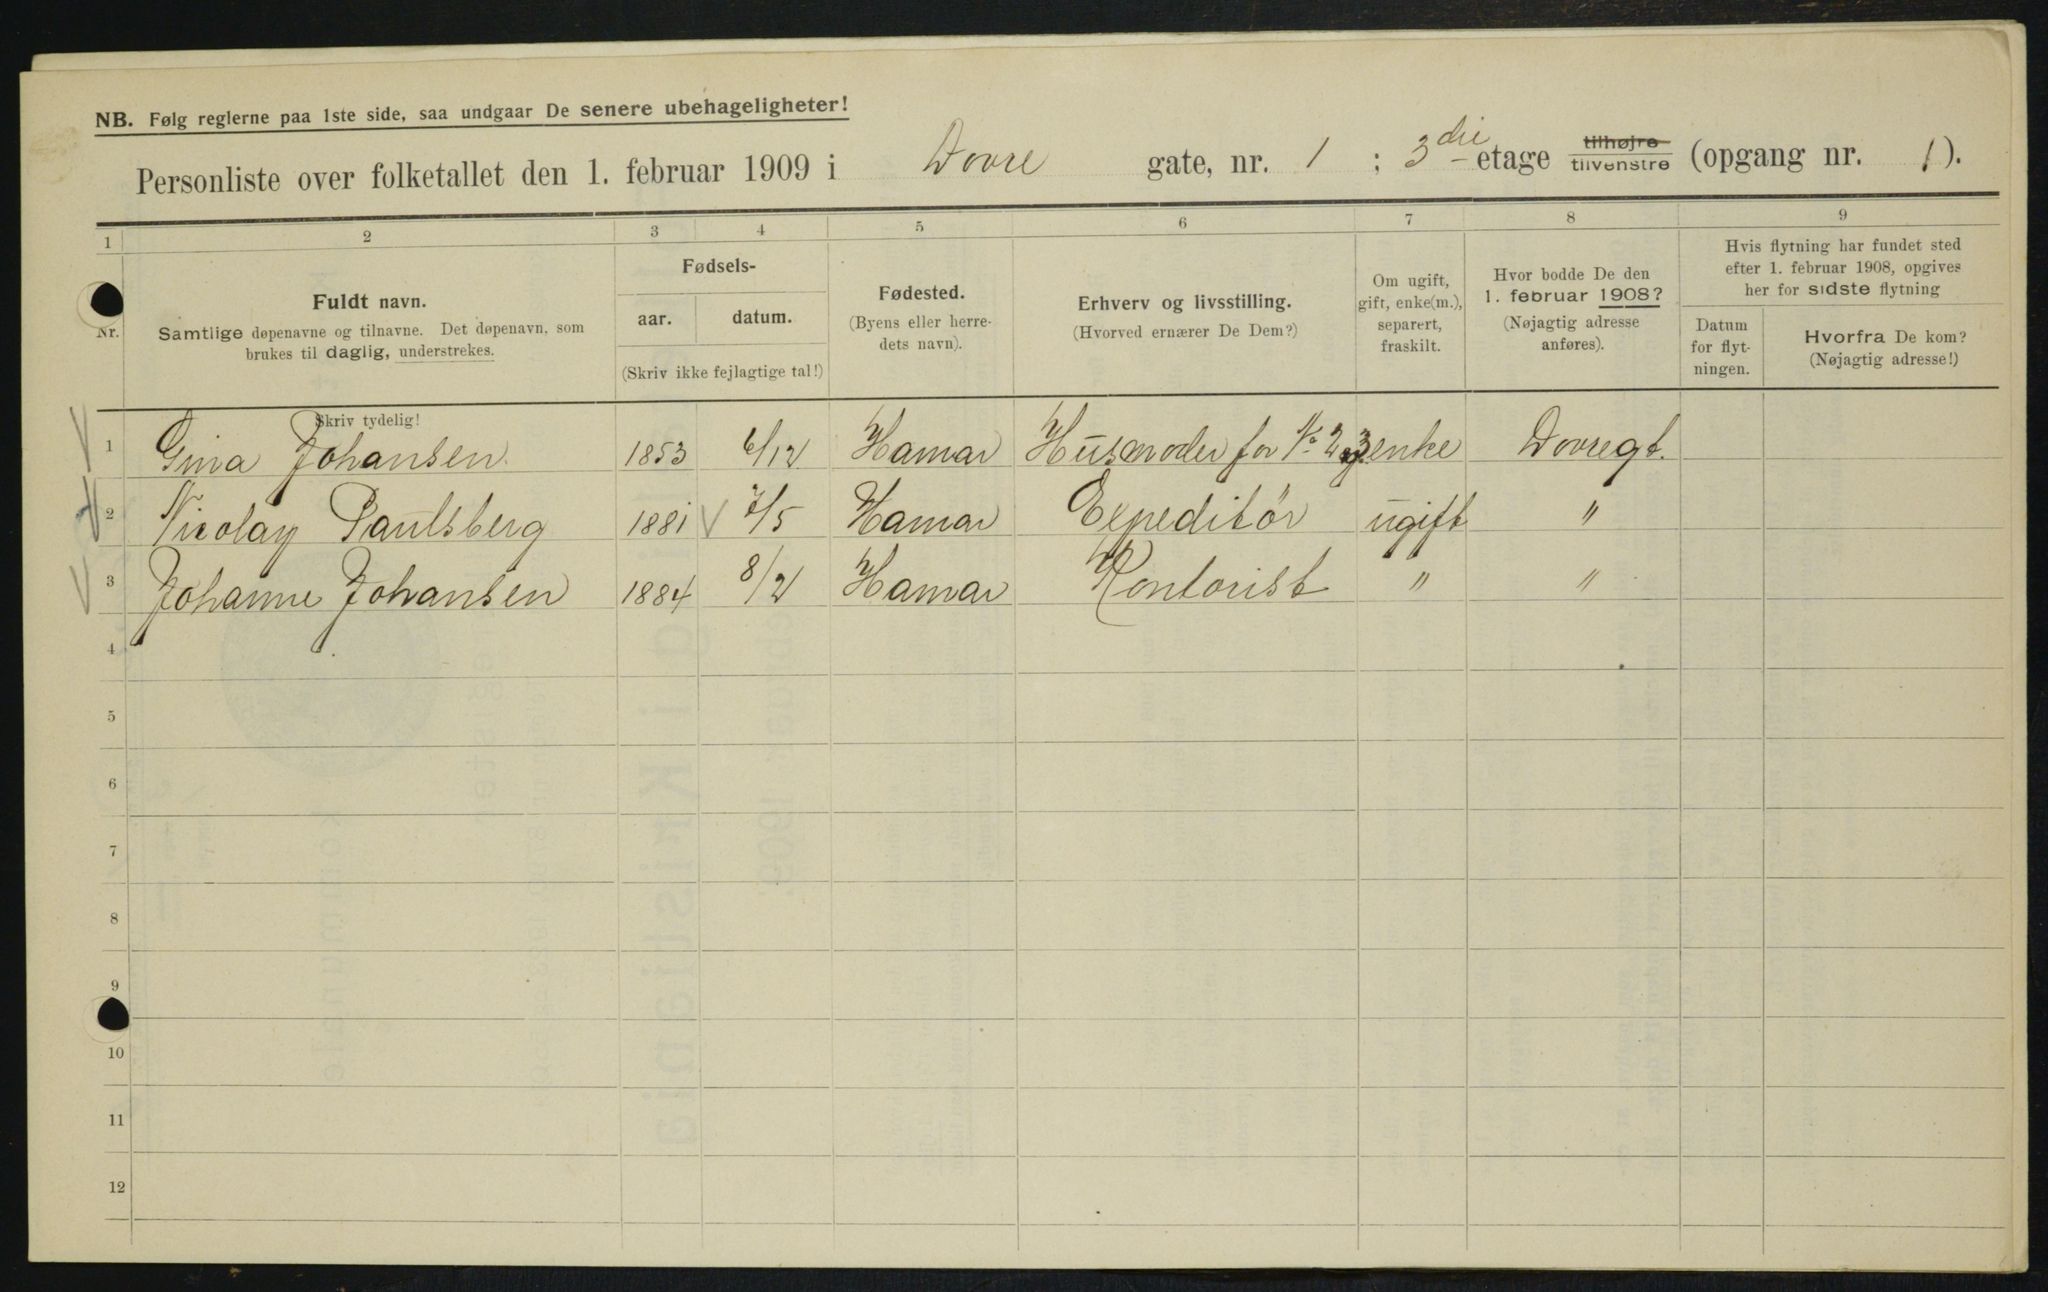 NB. Følg reglerne paa 1ste side, saa undgaar De senere ubehageligheter!
Personliste over folketallet den 1. februar 1909 i Dovre gate, nr. 1 ; 3die etage tilhøjre tilvenstre (opgang nr. 1).
1 2 3 4 5 6 7 8 9
Nr.
Fuldt navn.
Samtlige døpenavne og tilnavne. Det døpenavn, som
brukes til daglig, understrekes.
Fødsels-
aar. datum.
(Skriv ikke fejlagtige tal!)
Fødested.
(Byens eller herre-
dets navn).
Erhverv og livsstilling.
(Hvorved ernærer De Dem?)
Om ugift,
gift, enke(m.),
separert,
fraskilt.
Hvor bodde De den
1. februar 1908?
(Nøjagtig adresse
anføres).
Hvis flytning har fundet sted
efter 1. februar 1908, opgives
her for sidste flytning
Datum
for flyt-
ningen.
Hvorfra De kom?
(Nøjagtig adresse!)
Skriv tydelig!
1 Gina Johansen 1853 6/12 Hamar Husmoder for No 2 og 3 enke Dovregt.
2 Nicolay Paulsberg 1881 7/5 Hamar Expeditør ugift "
3 Johanne Johansen 1884 8/2 Hamar Kontorist " "
4
5
6
7
8
9
10
11
12